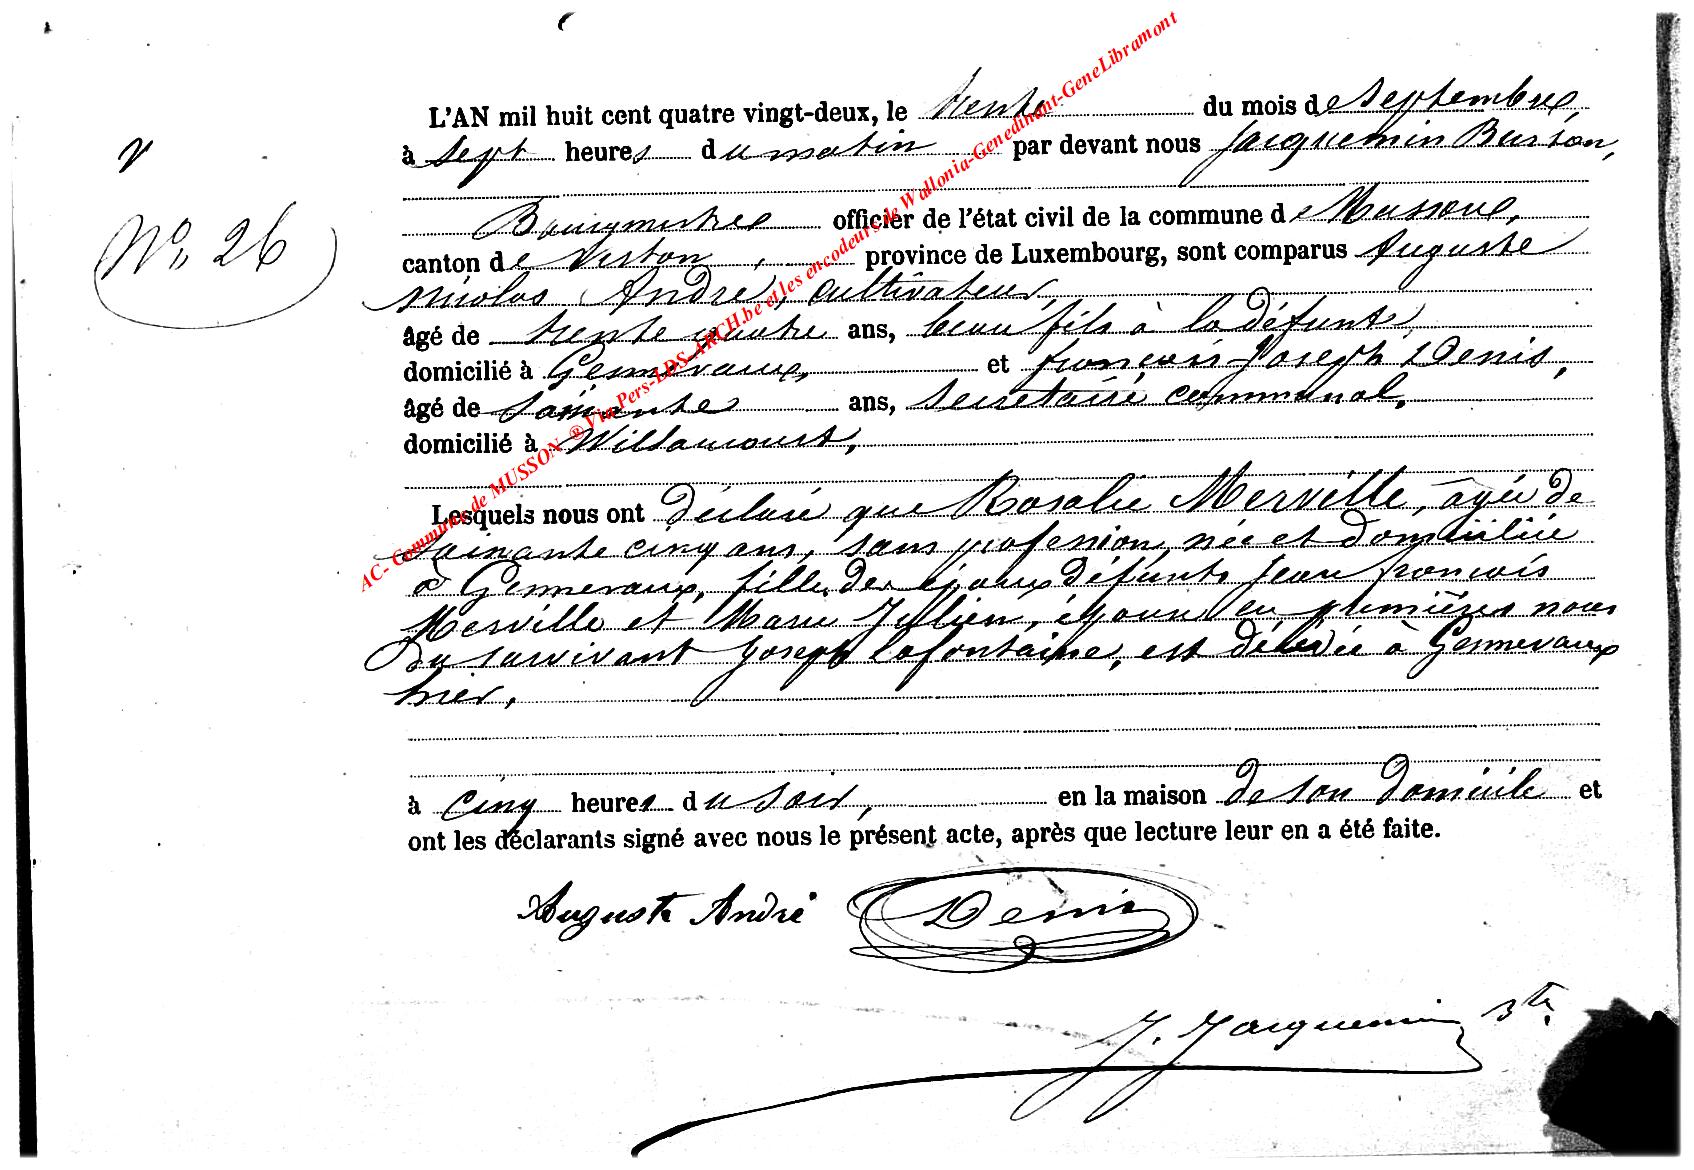 L'AN mil huit cent quatre vingt-deux, le trente du mois de Septembre,
à Sept heures du matin par devant nous Jacquemin
Bourgmestre officier de l'état civil de la commune de Musson,
N° 26
canton de Virton, province de Luxembourg, sont comparus Auguste
Nicolas André, cultivateur,
âgé de trente quatre ans, beau fils à la défunte,
domicilié à Gennevaux, et françois Joseph Denis,
âgé de Soixante ans, Secrétaire communal,
domicilié à Willancourt,
Lesquels nous ont déclaré que Rosalie Merville, âgée de
Soixante cinq ans, sans profession, née et domiciliée
à Gennevaux, fille des époux défunts Jean françois
Merville et Marie Jullien, épouse en premières noces
du survivant Joseph Lafontaine, est décédée à Gennevaux
hier,
à cinq heures du soir, en la maison de son domicile et
ont les déclarants signé avec nous le présent acte, après que lecture leur en a été faite.
Auguste André Denis
J. Jacquemin
AC- Commune de MUSSON ® Via Pers-LDS-ARCH.be et les encodeurs de Wallonia-Genedinant-GeneLibramont